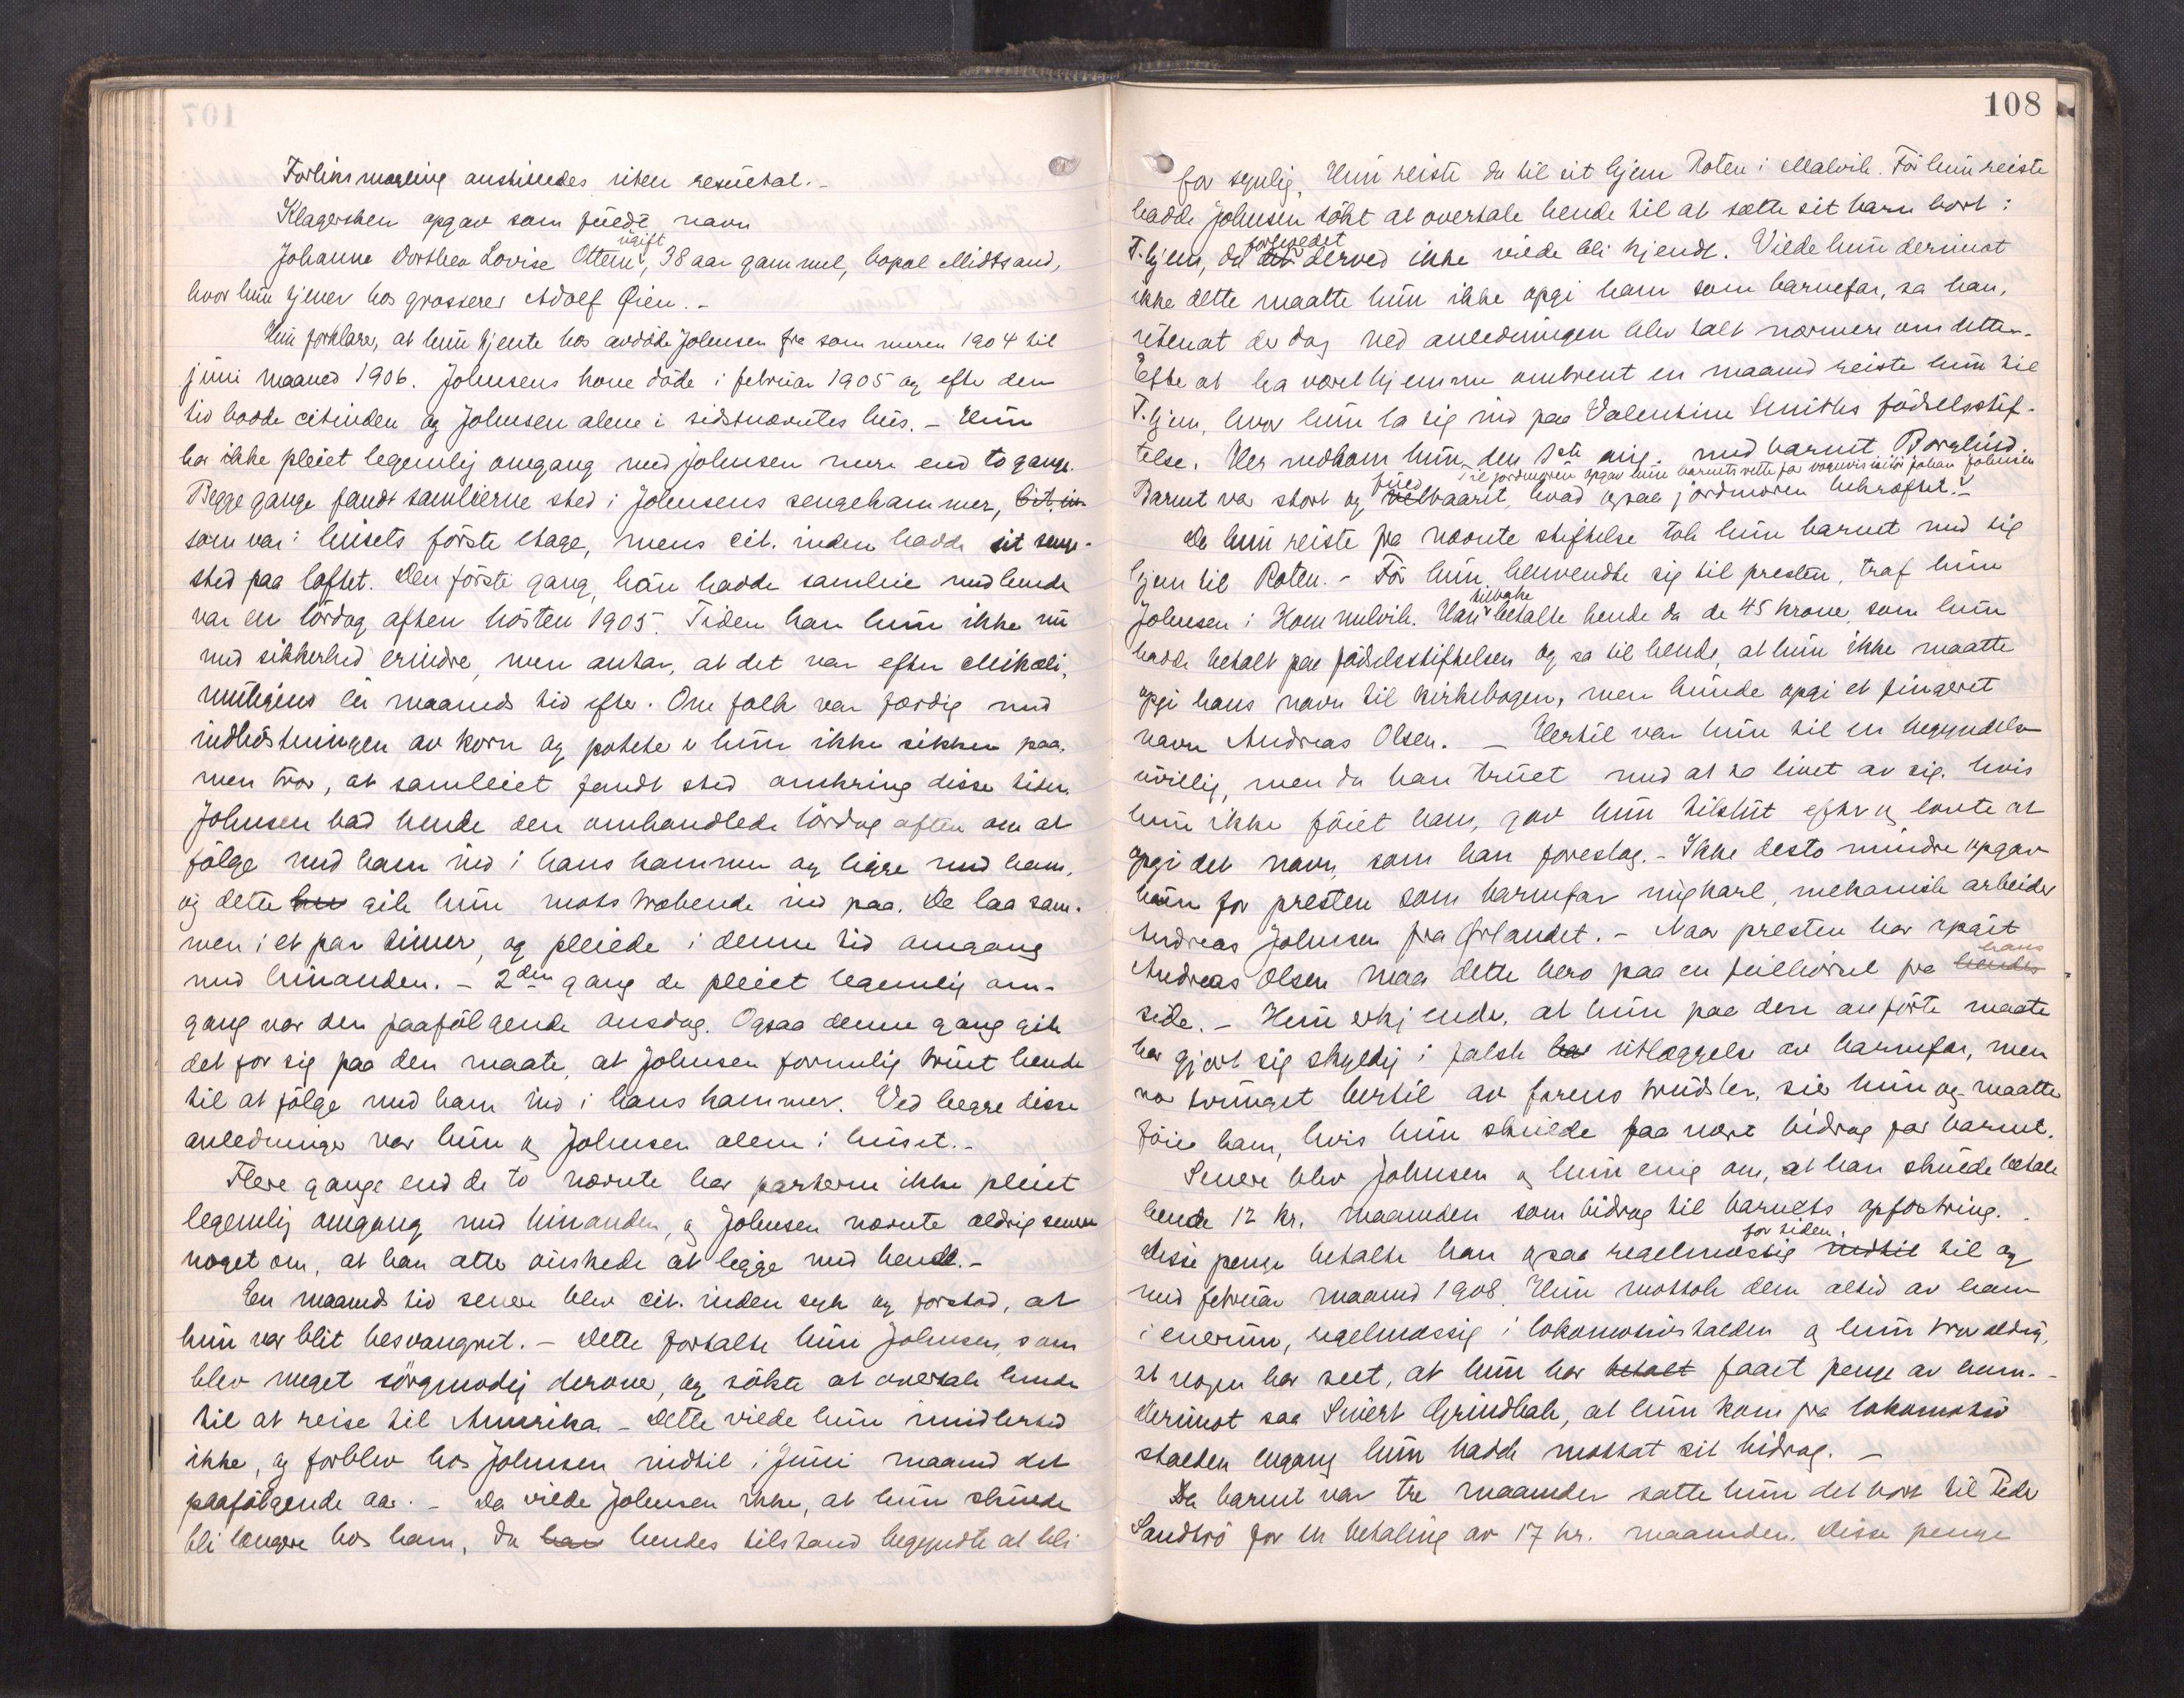 107
Forliksmægling anstilledes uten resultat.-
Klagersken opgav som fulde navn
Johanne Dorthea Lovise Ottem, ugift, 38 aar gammel, bopæl Midtsand,
hvor hun tjener hos grosserer Adolf Øien.-
Hun forklarer, at hun tjente hos avdöde Johnsen fra sommeren 1904 til
juni maaned 1906. Johnsens kone döde i februar 1905 og efter den
tid bodde citinden og Johnsen alene i sidstnævntes hus. - Hun
har ikke pleiet legemlig omgang med Johnsen mere end to gange.
Begge gange fandt samleierne sted i Johnsens sengekammer, cit.in
som var i husets förste etage, mens cit. inden hadde sit senge-
sted paa loftet. Den förste gang, han hadde samleie med hende
var en lördag aften hösten 1905. Tiden kan hun ikke nu
med sikkerhed erindre, men antar, at det var efter Mikæli,
muligens en maaneds tid efter. Om folk var færdig med
indhöstningen av korn og poteter er hun ikke sikker paa,
men tror, at samleiet fandt sted omkring disse tider.
Johnsen bad hende den omhandlede lördag aften om at
fölge med ham ind i hans kammer og ligge med ham,
og dette gik hun motstræbende ind paa. De laa sam-
men i et par timer, og pleiede i denne tid omgang
med hinanden. - 2den gang de pleiet legemlig om-
gang var den paafölgende onsdag. Ogsaa denne gang gik
det for sig paa den maate, at Johnsen formelig truet hende
til at fölge med ham ind i hans kammer. Ved begge disse
anledninger var hun og Johnsen alene i huset.-
Flere gange end de to nævnte har parterne ikke pleiet
legemlig omgang med hinanden, og Johnsen nævnte aldrig senere
noget om, at han atter önskede at ligge med hende.-
En maaneds tid senere blev cit. inden syk og forstod, at
hun var blit besvangret. - Dette fortalte hun Johnsen, som
blev meget sörgmodig derover, og sökte at overtale hende
til at reise til Amerika - Dette vilde hun imidlertid
ikke, og forblev hos Johnsen indtil i Juni maaned det
paafölgende aar. - Da vilde Johnsen ikke, at hun skulde
bli længere hos ham, da han hendes tilstand begyndte at bli
108
for synlig. Hun reiste da til sit hjem Roten i Malvik. För hun reiste
hadde Johnsen sökt at overtale hende til at sætte sit barn bort i
forholdet
T.hjem, da det derved ikke vilde bli kjendt. Vilde hun derimot
ikke dette maatte hun ikke opgi ham som barnefar, sa han,
utenat der dog ved anledningen blev talt nærmere om dette.-
Efter at ha været hjemme omtrent en maaned reiste hun til
T.hjem, hvor hun la sig ind paa Valentine Smiths födselsstif-
telse. Her nedkom hun den 1ste aug. med barnet Borglind.
Til jordmoren opgav hun barnets rette far Johan Johnsen
fuld
Barnet var stort og velbaaret, hvad ogsaa jordmoren bekræftet.-
Da hun reiste fra nævnte stiftelse tok hun barnet med sig
hjem til Roten. - För hun henvendte sig til presten, traf hun
tilbake
Johnsen i Hommelvik. Han betalte hende da de 45 kroner, som hun
hadde betalt paa födselsstiftelsen og sa til hende, at hun ikke maatte
opgi hans navn til kirkebogen, men kunde opgi et fingeret
navn Andreas Olsen. - Hertil var hun til en begyndelse
uvillig, men da han truet med at ta livet av sig, hvis
hun ikke föiet ham, gav hun tilslut efter og lovte at
opgi det navn, som han foreslog. - Ikke desto mindre opgav
hun for presten som barnefar ungkarl, mekanisk arbeider
Andreas Johnsen fra Ørlandet. - Naar presten har opgit
hans
Andreas Olsen maa dette bero paa en feilhörsel fra hendes
side. - Hun erkjender, at hun paa den anförte maate
har gjort sig skyldig i falsk bar utlæggelse av barnefar, men
var tvunget hertil av farens trudsler, sier hun og maatte
föie ham, hvis hun skulde faa noget bidrag for barnet.
Senere blev Johnsen og hun enig om, at han skulde betale
hende 12 kr. maaneden som bidrag til barnets opfostring.
for tiden
Disse penge betalte han ogsaa regelmæssig indtil til og
med februar maaned 1908. Hun mottok dem altid av ham
i enerum, regelmæssig i lokomotivstalden og hun tror aldrig,
at nogen har seet, at hun har betalt faaet penge av ham.-
Derimot saa Sivert Grindbak, at hun kom fra lokomotiv
stalden engang hun hadde mottat sit bidrag. -
Da barnet var tre maaneder satte hun det bort til Peder
Sandtrö for en betaling av 17 kr. maaneden. Disse penge